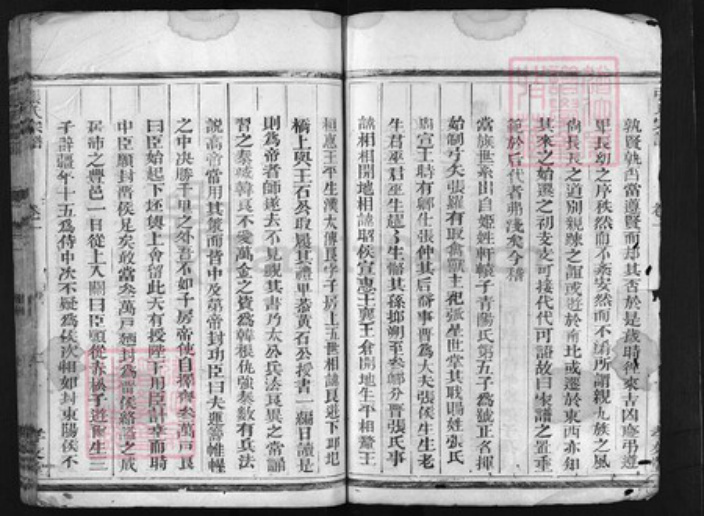 孰賢孰否當遵賢而却其否於是歲時往來吉凶慶弔遵
卑長幼之序秩然而不紊安然而不淆所謂親九族之風
尚長長之道別親疎之誼或遊於南北或遷於東西亦知
其來之始遷之初支支可接代代可證故曰宗譜之宜重
範於后代者弗淺矣今稽
當族世系出自姬姓軒轅子青陽氏第五子為弧正名揮
始制弓矢張羅有取禽獸主祀張星世掌其職賜姓張氏
周宣王時有卿仕張仲其后裔事晉為大夫張侯生生老
生君巫君巫生趯趯生骼其孫抑朔至叁卿分晉張氏事
韓相相開地相韓昭侯宣惠王襄王倉開地生平相釐王
桓惠王平生漢太傅良字子房上五世相韓良逃下邳圯
橋上與王石公取履其禮畢恭黃石公授書一編曰讀是
則為帝者師遂去不見觀其書乃太公兵法良異之常誦
習之秦破韓良不愛萬金之資為韓報仇強秦數有兵法
說高帝常用其策而皆中及第帝封功臣曰夫運籌帷幄
之中决勝千里之外吾不如子房帝使自擇齊叁萬戶良
曰臣始起下邳與上會留此天有授陛下用臣計幸而時
中臣願封畱侯足矣敢當叁萬戶廼封為畱侯
居沛之豐邑一日從上入關曰臣願從赤松子遊
子辟疆年十五為侍中次不疑為
次相如封東陽侯不